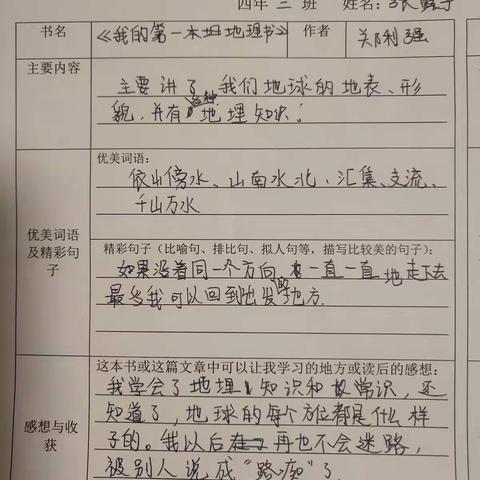 四年 三 班 姓名：
书名 《我的第一本地理书》 作者 郑利强
主要内容
主要讲了我们地球的地表、形
貌,并有各种地理知识!
优美词语及精彩句子
优美词语:
依山傍水、山南水北、汇集、交流、
千山万水
精彩句子（比喻句、排比句、拟人句等，描写比较美的句子）:
如果沿着同一个方向一直一直地走下去
最当我可以回到出发的地方.
感想与收获
这本书或这篇文章中可以让我学习的地方或读后的感想:
我学会了地埋知识和常识，还
知道了,地球的每个方位都是什么样
子的。我以后再也不会迷路，
被别人说成“路痴”了